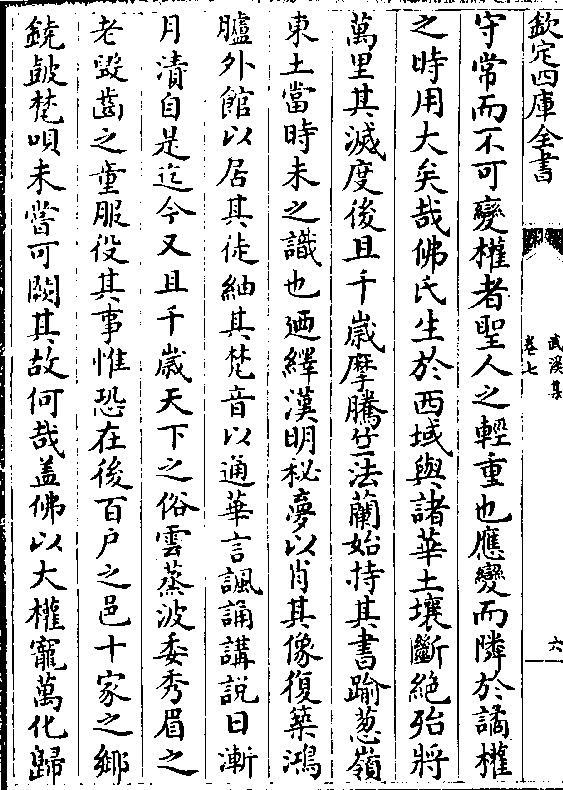 欽定四庫全書
武溪集
卷七
六
守常而不可變權者聖人之輕重也應變而隣於譎權
之時用大矣哉佛氏生於西域與諸華土壤斷絕殆將
萬里其滅度後且千歲摩騰竺法蘭始持其書踰葱嶺
東土當時未之識也廼繹漢明秘夢以肖其像復築鴻
臚外館以居其徒紬其梵音以通華言諷誦講説日漸
月漬自是迄今又且千歲天下之俗雲蒸波委秀眉之
老毀齒之童服役其事惟恐在後百户之邑十家之鄉
鐃皷梵唄未嘗可闕其故何哉盖佛以大權寵萬化歸